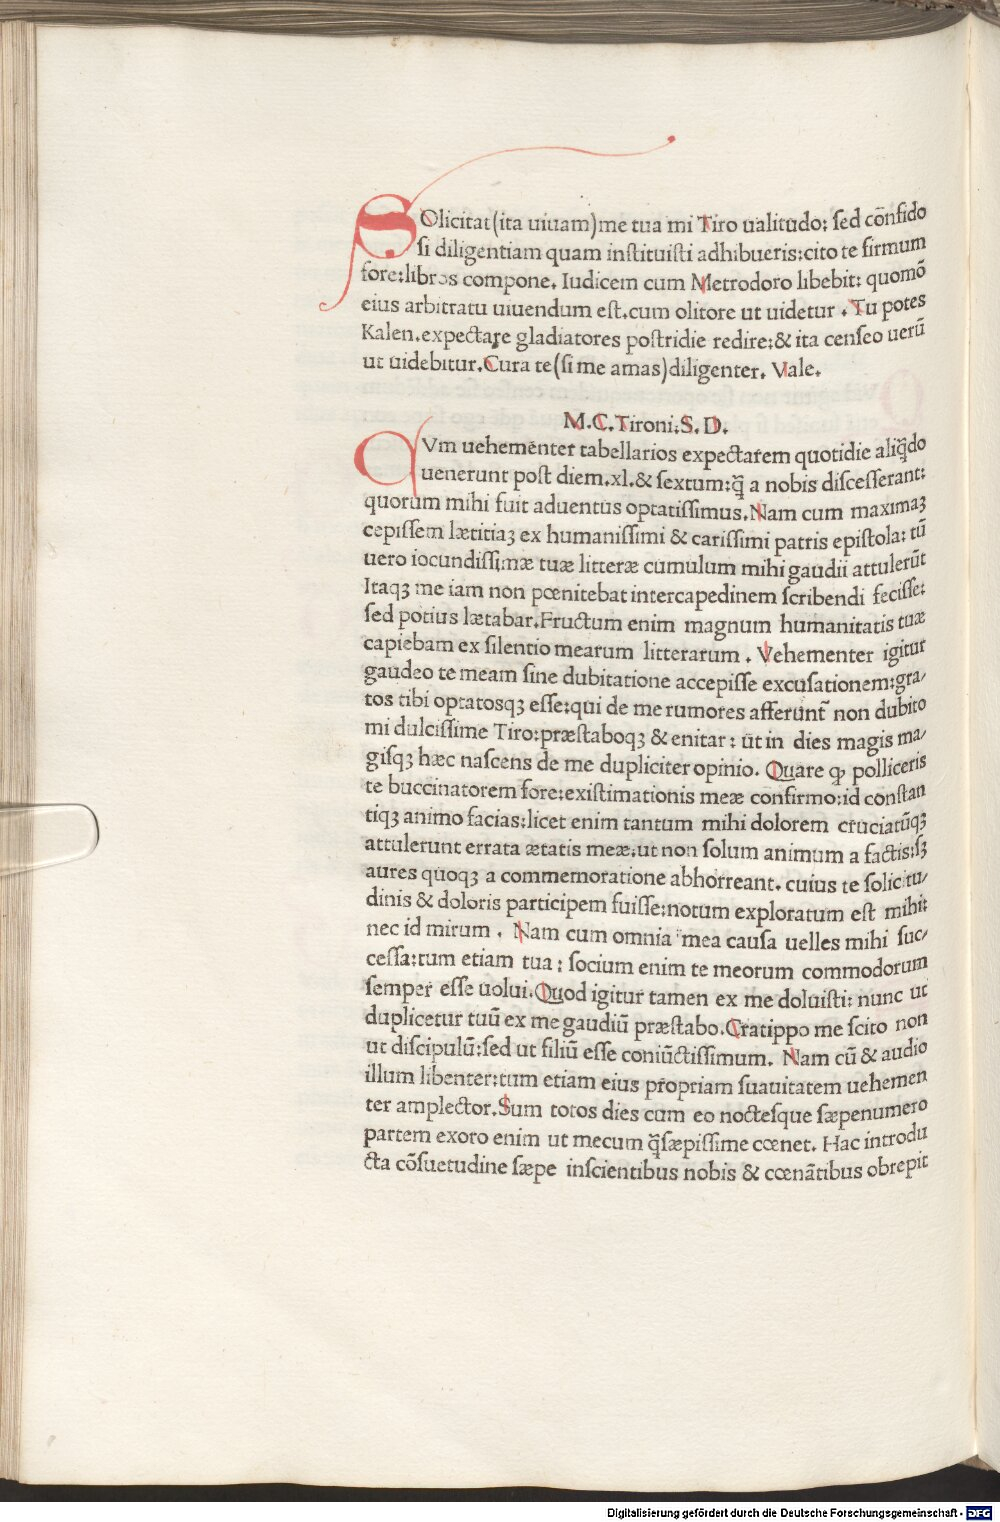 SOlicitat(ita uiuam)me tua mi Tiro ualitudo: ſed cōnfido
ſi diligentiam quam inſtituiſti adhibueris:cito te firmum
fore:libros compone. Iudicem cum Metrodoro libebit: quomō
eius arbitratu uiuendum eſt.cum olitore ut uidetur . Tu potes
Kalen.expectare gladiatores poſtridie redire:& ita cenſeo uerū
ut uidebitur.Cura te(ſi me amas)diligenter. Vale.
M.C.Tironi.S.D.
CVm uehementer tabellarios expectarem quotidie aliq̄do
uenerunt poſt diem.xl.& ſextum:q̄ a nobis diſceſſerant:
quorum mihi fuit aduentus optatiſſimus.Nam cum maximaꝫ
cepiſſem lætitiaꝫ ex humaniſſimi & cariſſimi patris epiſtola: tū
uero iocundiſſimæ tuæ litteræ cumulum mihi gaudii attulerūt
Itaqꝫ me iam non pœnitebat intercapedinem ſcribendi feciſſe:
ſed potius lætabar.Fructum enim magnum humanitatis tuæ
capiebam ex ſilentio mearum litterarum . Vehementer igitur
gaudeo te meam ſine dubitatione accepiſſe excuſationem:gra/
tos tibi optatosqꝫ eſſe:qui de me rumores afferunt̄ non dubito
mi dulciſſime Tiro:præſtaboqꝫ & enitar: ut in dies magis ma/
giſqꝫ hæc naſcens de me dupliciter opinio. Quare ꝙ polliceris
te buccinatorem fore:exiſtimationis meæ confirmo:id conſtan
tiqꝫ animo facias:licet enim tantum mihi dolorem cruciatūqꝫ
attulerunt errata ætatis meæ.ut non ſolum animum a factis:ſꝫ
aures quoqꝫ a commemoratione abhorreant. cuius te ſolicitu/
dinis & doloris participem fuiſſe:notum exploratum eſt mihi:
nec id mirum . Nam cum omnia mea cauſa uelles mihi ſuc/
ceſſa:tum etiam tua: ſocium enim te meorum commodorum
ſemper eſſe uolui.Quod igitur tamen ex me doluiſti: nunc ut
duplicetur tuū ex me gaudiū præſtabo.Cratippo me ſcito non
ut diſcipulū:ſed ut filiū eſſe coniūctiſſimum. Nam cū & audio
illum libenter:tum etiam eius propriam ſuauitatem uehemen
ter amplector.Sum totos dies cum eo noctesque ſæpenumero
partem exoro enim ut mecum q̄ſæpiſſime cœnet. Hac introdu
cta cōſuetudine ſæpe inſcientibus nobis & cœnātibus obrepit
Digitalisierung gefördert durch die Deutsche Forschungsgemeinschaft - DFG